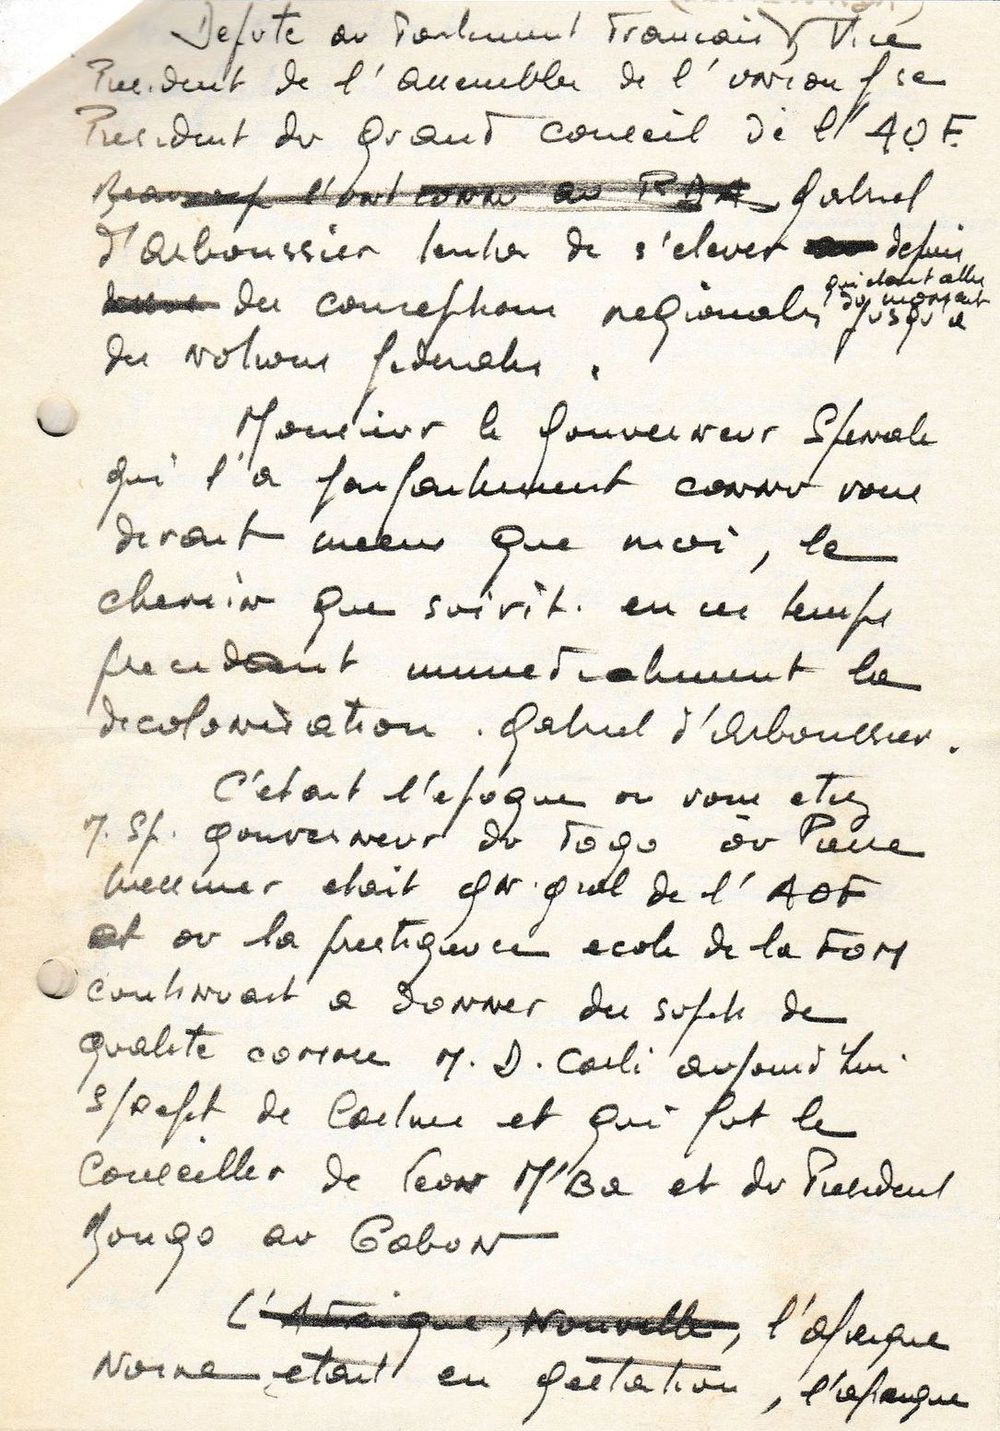 Depute au Parlement Francais, Vice
President de l'assemblee de l'union fse
President du Grand conseil de l'A.O.F.
Beaucoup l'ont connu au RDA Gabriel
d'Arboussier tenta de s'elever depuis
des conceptions regionales qui etant alles
du morcant jusqu'a
des notions federales.
Monsieur le Gouverneur Spenale
qui l'a parfaitement connu vous
dirait mieux que moi, le
chemin que suivit. en ces temps
precedant immediatement la
decolonisation. Gabriel d'Arboussier.
C'etait l'epoque ou vous etiez
M. Sp. gouverneur du Togo où Pierre
Messmer etait gn. gral de l'AOF
et ou la prestigieuse ecole de la FOM
continuait a donner des sujets de
qualite comme M. D. Carli aujourd'hui
s/pefet de Castres et qui fut le
Conseiller de Leon M'Ba et du President
Bongo au Gabon
L'Afrique, Nouvelle, l'afrique
Noire etait en gestation, l'afrique